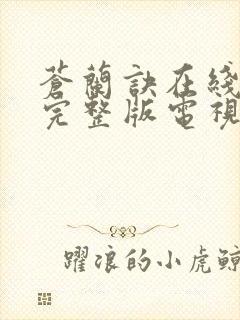 蒼蘭訣在綫
完整版電視
躍浪的小虎鯨